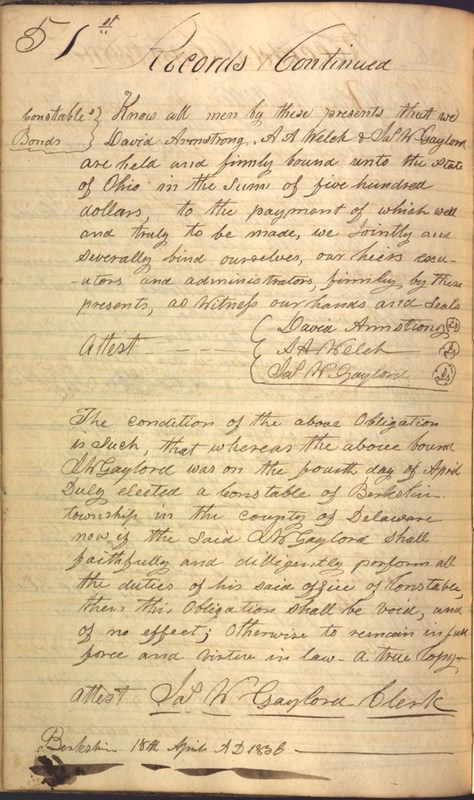 51st
Records Continued
Constable's } Know all men by these presents that we
Bonds } David Armstrong, A A Welch & Jas W Gaylord
are held and firmly bound unto the State
of Ohio in the sum of five hundred
dollars, to the payment of which well
and truly to be made, we Jointly and
Severally bind ourselves, our heirs exec-
-utors and administrators, firmly by these
presents, as Witness our hands and Seals
David Armstrong
Attest A A Welch
Jas W Gaylord
The condition of the above Obligation
is Such, that whereas the above bound
J W Gaylord was on the fourth day of April
Duly elected a Constable of Berkshire
township in the county of Delaware
now if the Said J W Gaylord shall
faithfully and dilligently perform all
the duties of his said office of Constable,
then this Obligation Shall be void, and
of no effect; Otherwise to remain in full
force and virtue in law - a true Copy-
attest Jas W Gaylord Clerk
Berkshire 18th April AD 1836